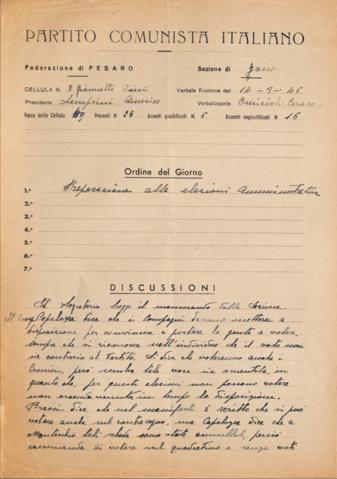 PARTITO COMUNISTA ITALIANO
Federazione di PESARO Sezione di Fano
CELLULA N. 3 Giannetto Dini Verbale Riunione del 14-3-46
Presidente Semprini Americo Verbalizzante Omiccioli Cesare
Forza della Cellula Presenti N. 28 Assenti giustificati N. 5 Assenti ingiustificati N. 16
Ordine del Giorno
1.° Preparazione alle elezioni amministrative
2.°
3.°
4.°
5.°
6.°
7.°
DISCUSSIONI
Il Segretario legge il memorando della Sezione.
Il Comp. Capalozza dice che i Compagni devono mettersi a
disposizione per convincere e portare la gente a votare,
sempre che si riconosce nell'individuo che il voto non
sia contrario al Partito. Si dice che voteranno anche i
Cronici, però sembra tale voce sia smentita, in
quanto che, per queste elezioni non possono votare
non essendo venuta in tempo la disposizione.
dice che nel manifesto è scritto che si può
votare anche sul contrassegno, ma Capalozza dice che a
tali schede sono state annullate, perciò
raccomanda di votare sul quadretino e senza